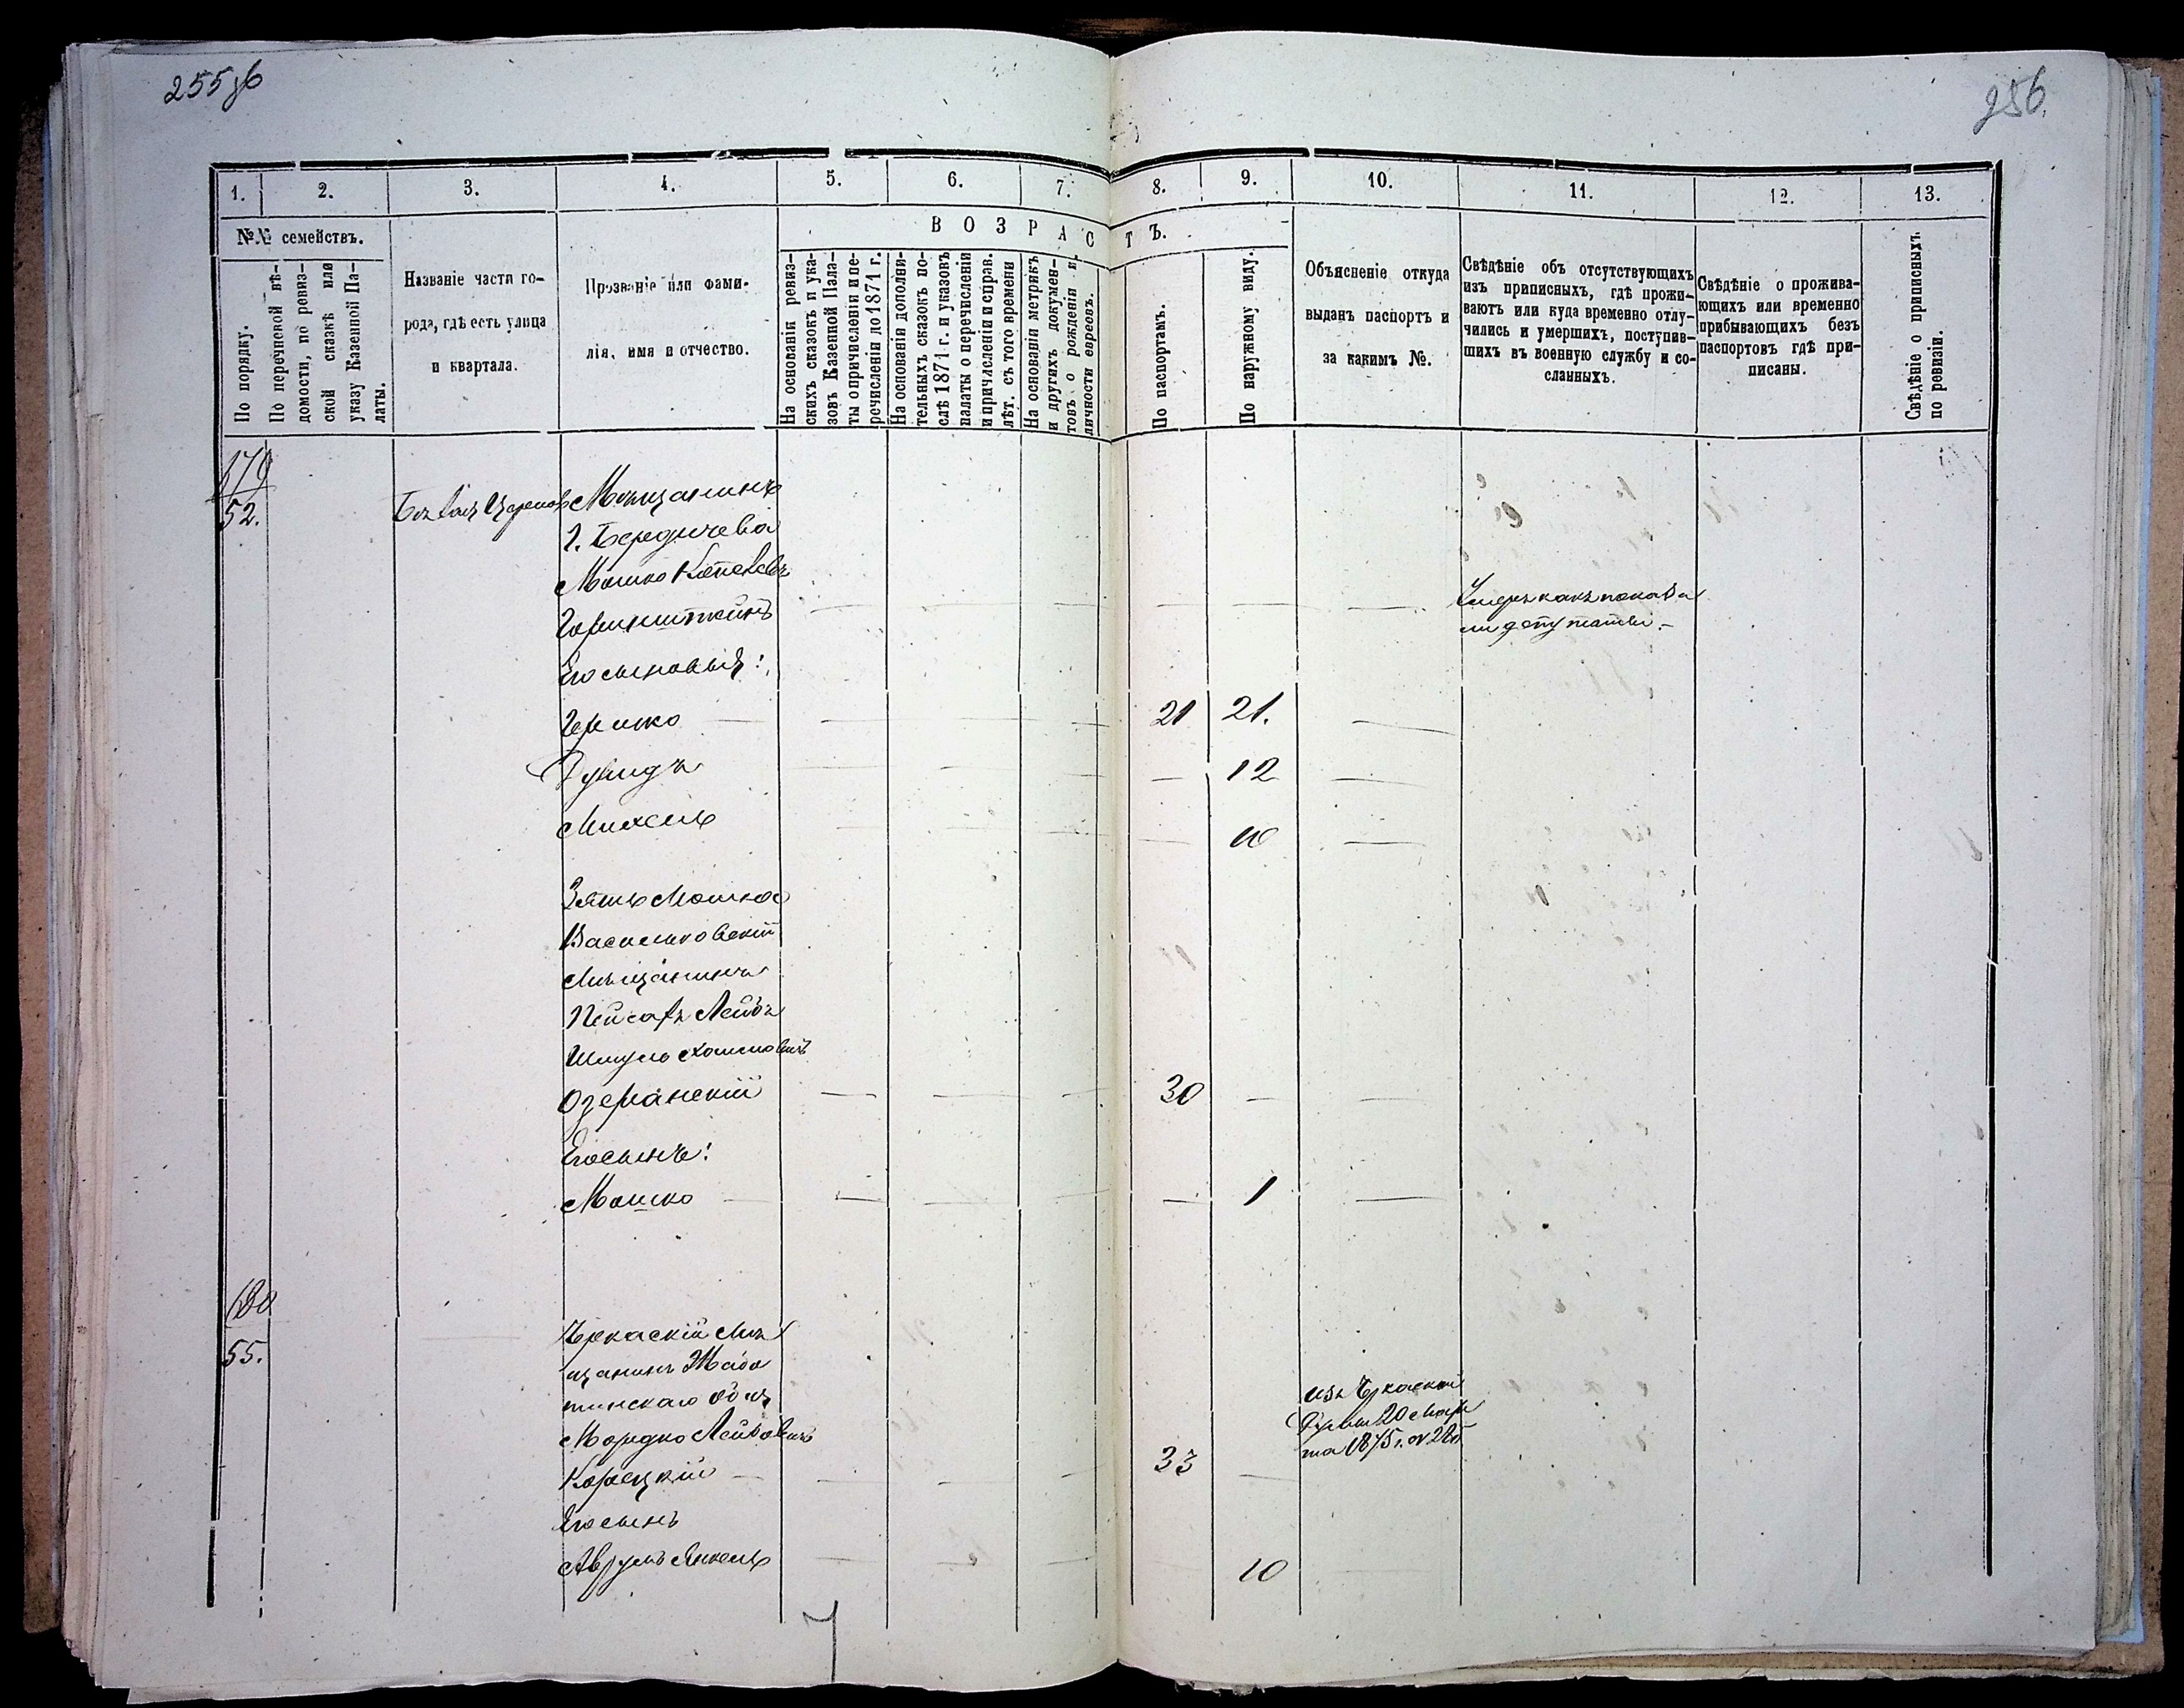 255 об
256.
1.
2.
3.
4.
5.
6.
7.
8.
9.
10.
11.
12.
13.
№№ семействъ.
В О З Р А С Т Ъ.
По порядку.
По перечневой вѣ-
домости, по ревиз-
ской сказкѣ или
указу Казенной Па-
латы.
Названіе части го-
рода, гдѣ есть улица
и квартала.
Прозваніе или фами-
лія, имя и отчество.
На основаніи ревиз-
скихъ сказокъ и ука-
зовъ Казенной Пала-
ты о причисленіи и пе-
речисленіи до 1871 г.
На основаніи дополни-
тельныхъ сказокъ по-
слѣ 1871 г. и указовъ
палаты о перечисленіи
и причисленіи и справ.
лѣт. съ того времени
На основаніи метрикъ
и другихъ докумен-
товъ о рожденіи и
личности евреевъ.
По паспортамъ.
По наружному виду.
Объясненіе откуда
выданъ паспортъ и
за какимъ №.
Свѣдѣніе объ отсутствующихъ
изъ приписныхъ, гдѣ прожи-
ваютъ или куда временно отлу-
чились и умершихъ, поступив-
шихъ въ военную службу и со-
сланныхъ.
Свѣдѣніе о прожива-
ющихъ или временно
прибывающихъ безъ
паспортовъ гдѣ при-
писаны.
Свѣдѣніе о приписныхъ
по ревизіи.
179
52.
Мѣщанинъ
г. Бердичева
Мошко
Горинштейнъ
Умеръ какъ показа
ли депутаты.
Его сыновья:
Гершко — — — — 21 21. —
Дувидъ — — — — 12 —
Михель — — — — 10 —
Зять Мошка
Васильковскій
мѣщанинъ
Пейсахъ Лейбъ
Шмуль Хаимовичъ
Озерянскій — — — 30 — —
Его сынъ:
Мошко — — — — — 1 —
180
55.
Черкаскій мѣ
щанинъ Жабо
тинскаго общ
Мордко Лейбовичъ
Корецкій — — — — 33 —
изъ Черкаской
Думы 20 мар
та 1875 г.
Его сынъ
Аврумъ Янкель — — — 10